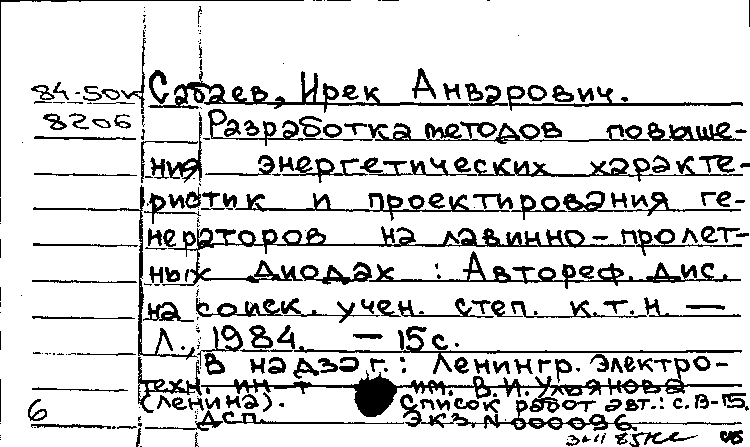 84-50к Сабаев, Ирек Анварович.
8206 Разработка методов повыше-
ния энергетических характе-
ристик и проектирования ге-
нераторов на лавинно-пролет-
ных диодах : Автореф. дис.
на соиск. учен. степ. к.т.н. —
Л., 1984. — 15 с.
В надзаг.: Ленингр. электро-
техн. ин-т им. В.И. Ульянова
(Ленина). Список работ авт.: с.13-15.
6 ДСП. Экз. N 000096.